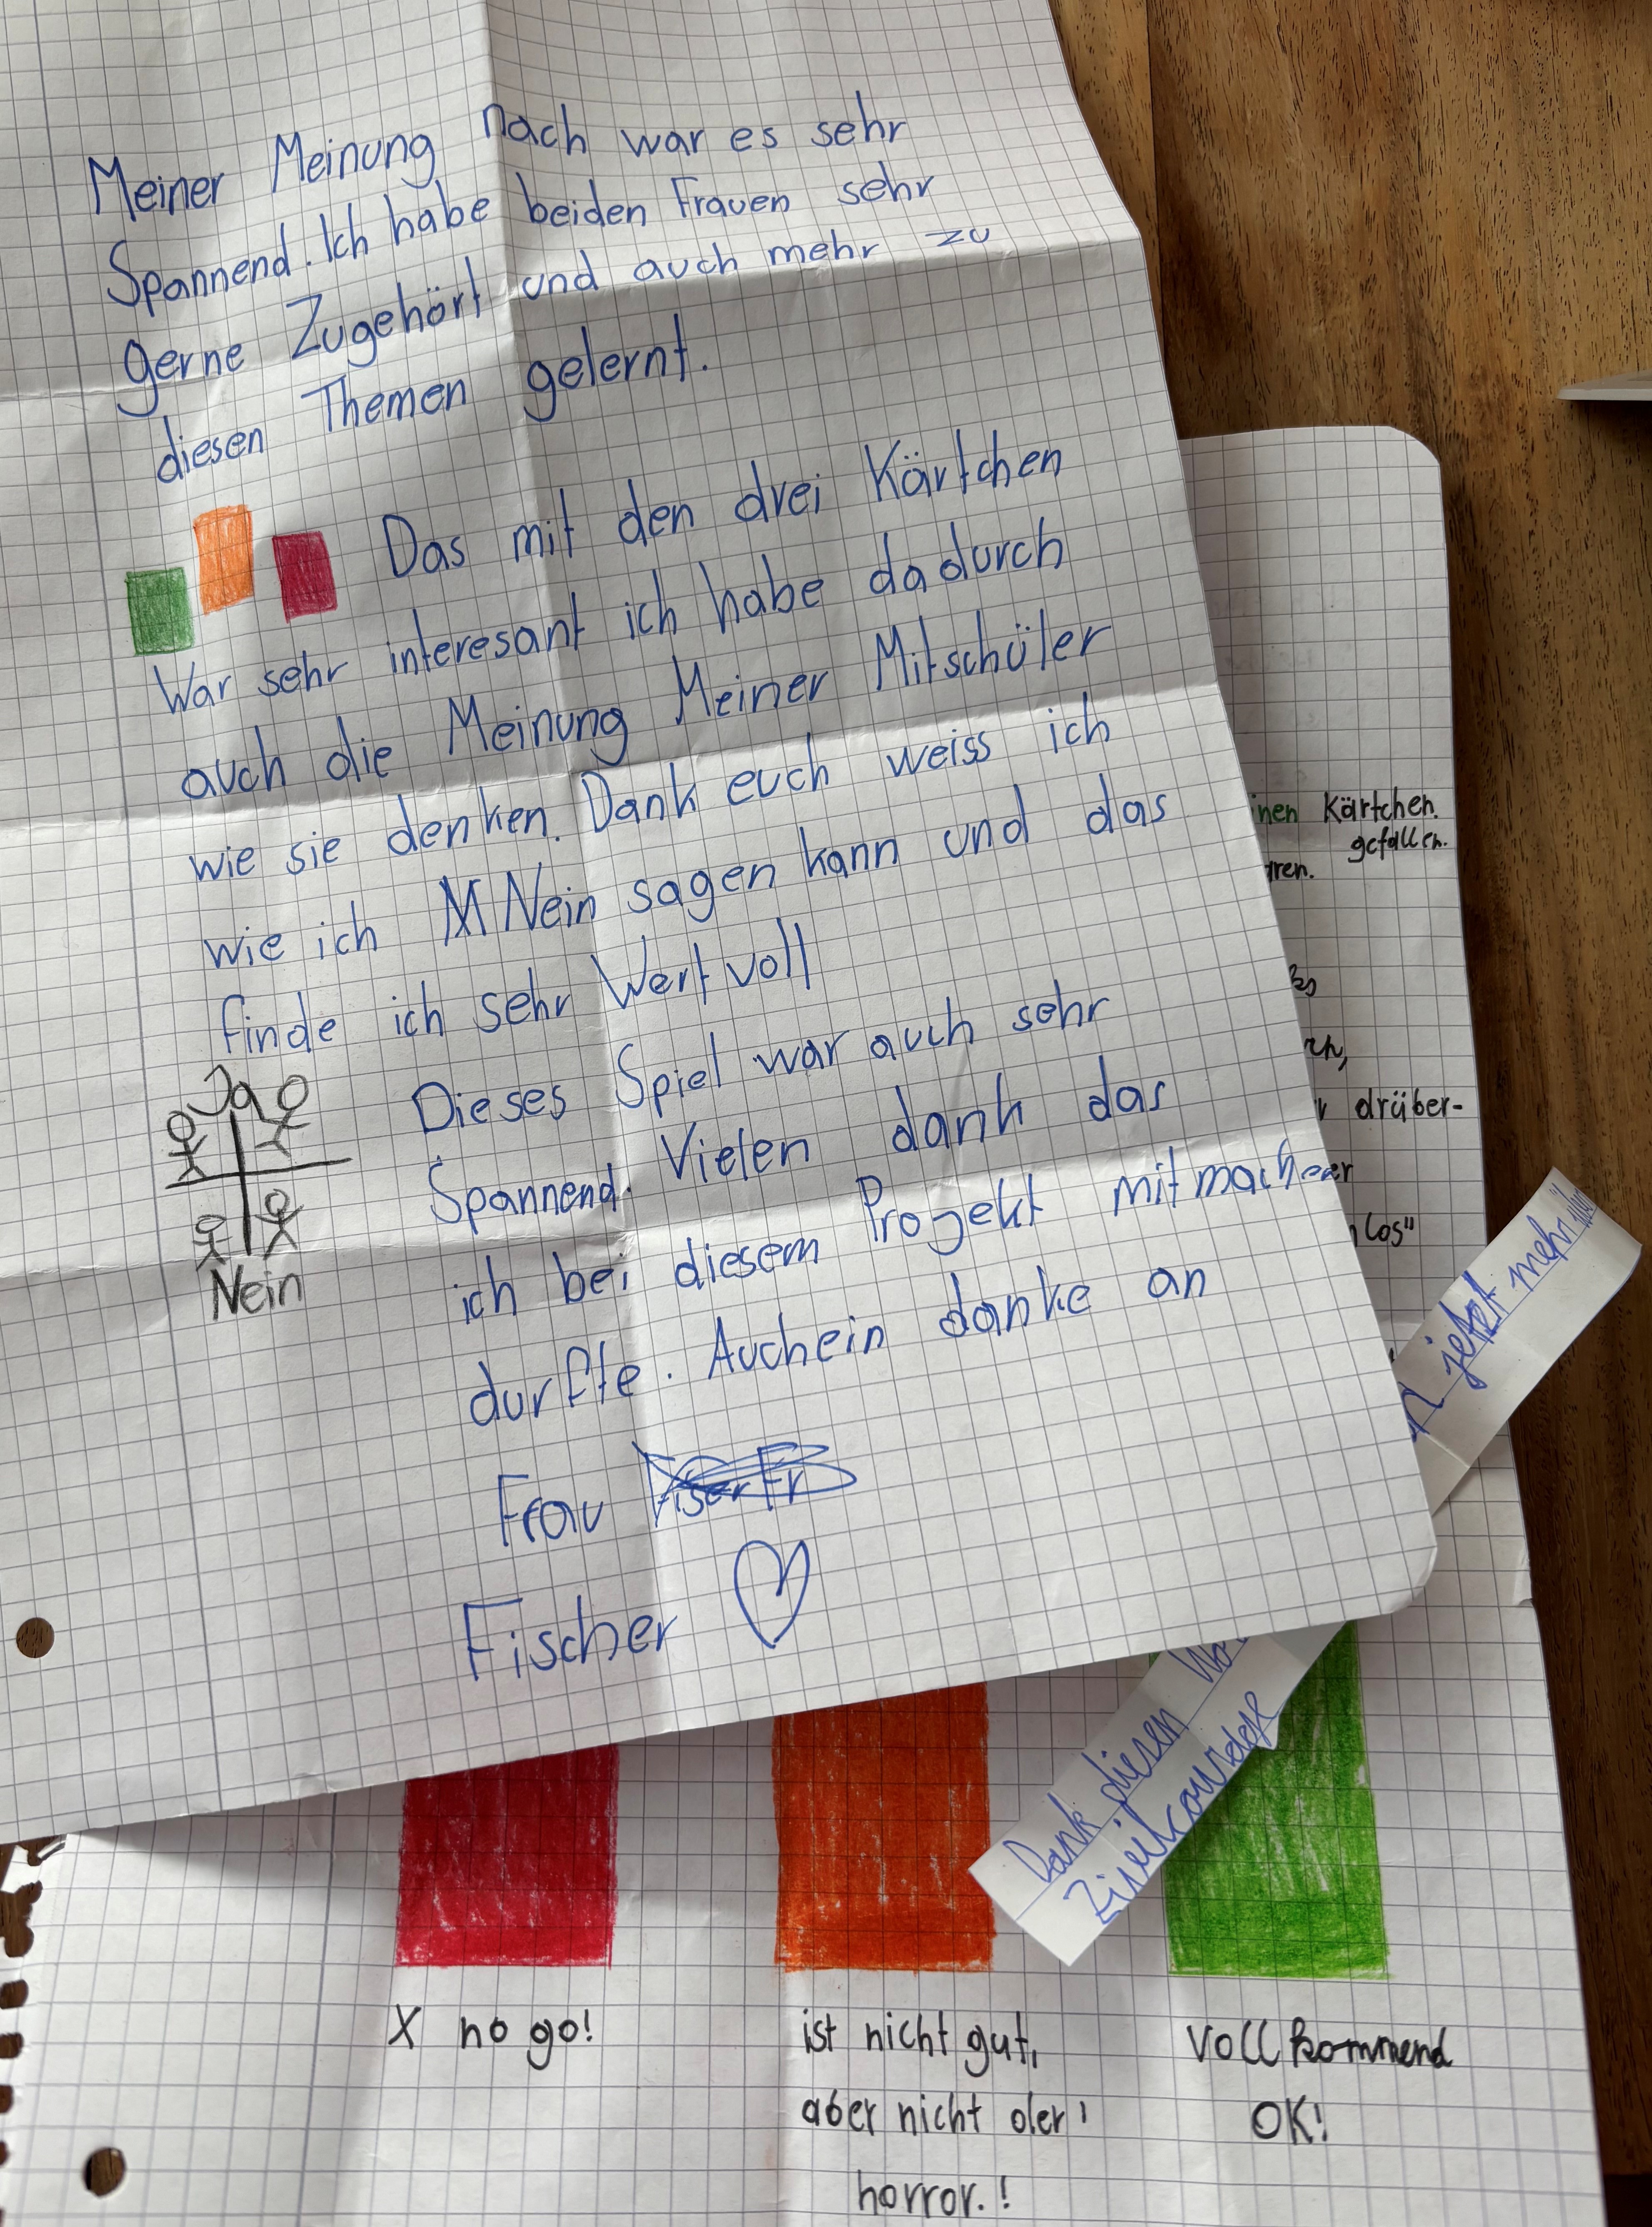 Meiner Meinung nach war es sehr
Spannend. Ich habe beiden Frauen sehr
gerne Zugehört und auch mehr zu
diesen Themen gelernt.
Das mit den drei Kärtchen
War sehr interesant ich habe dadurch
auch die Meinung Meiner Mitschüler
wie sie denken. Dank euch weiss ich
wie ich Nein sagen kann und das
finde ich sehr Wertvoll
Ja
Nein
Dieses Spiel war auch sehr
Spannend. Vielen dank das
ich bei diesem Projekt mitmachen
durfte. Auch ein danke an
Frau
Fischer
inen Kärtchen.
gefallen.
drüber-
los"
jetzt mehr
Dank diesen
Zivilcourage
X no go!
ist nicht gut,
aber nicht der
horror.!
Vollkommend
OK!